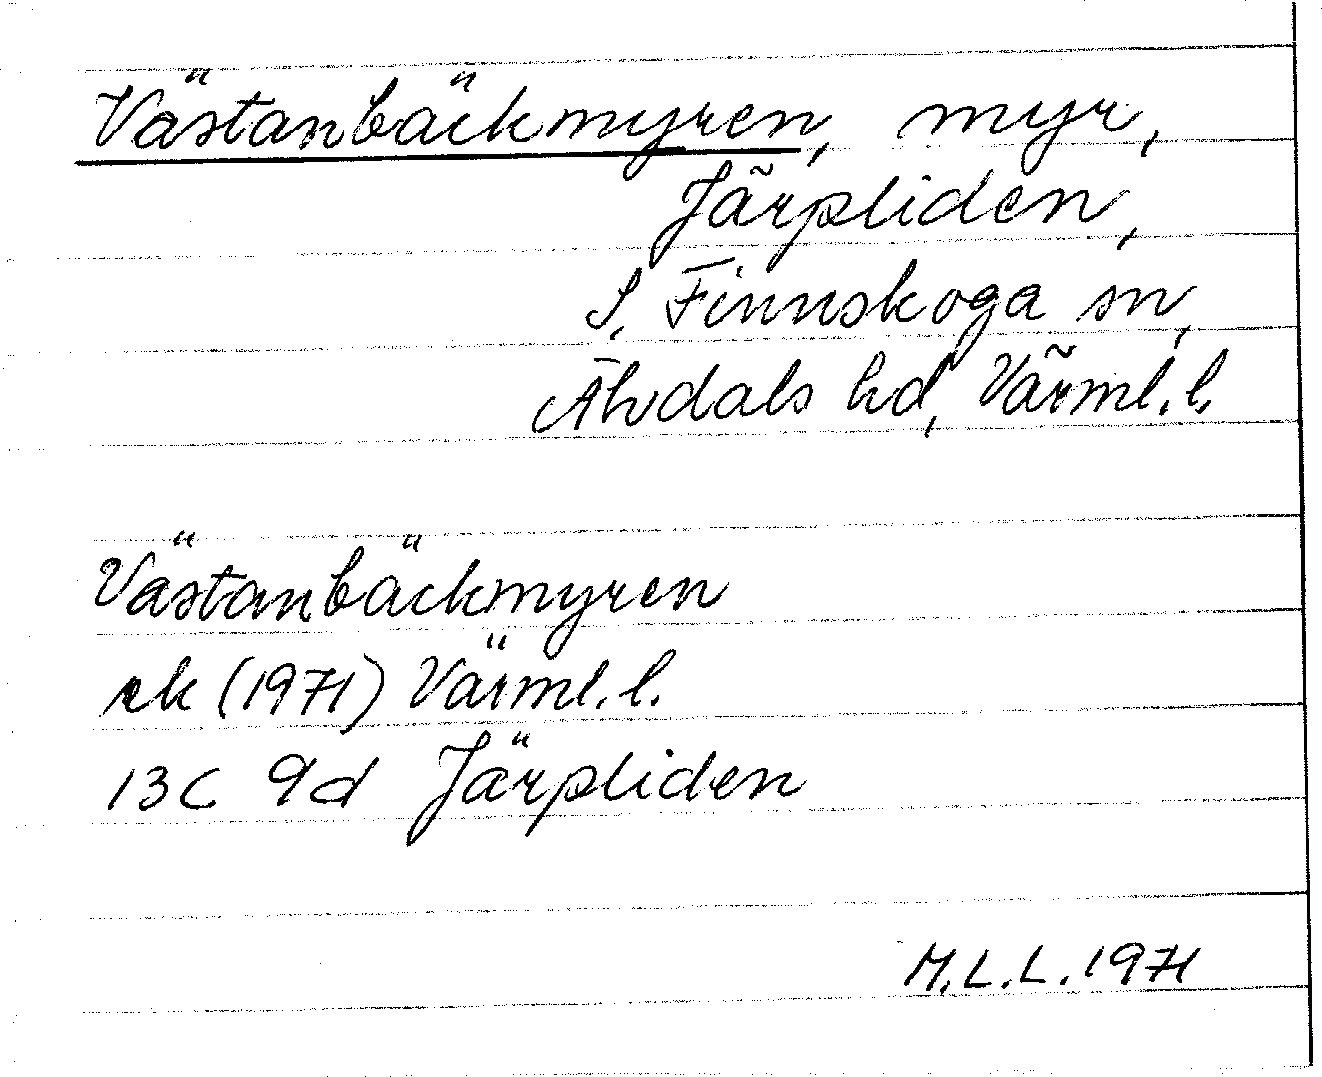 Västanbäckmyren, myr,
Järpliden,
S. Finnskoga sn,
Älvdals hd, Värml. l.
Västanbäckmyren
rk (1971) Värml. l.
13C 9d Järpliden
M.L.L. 1971